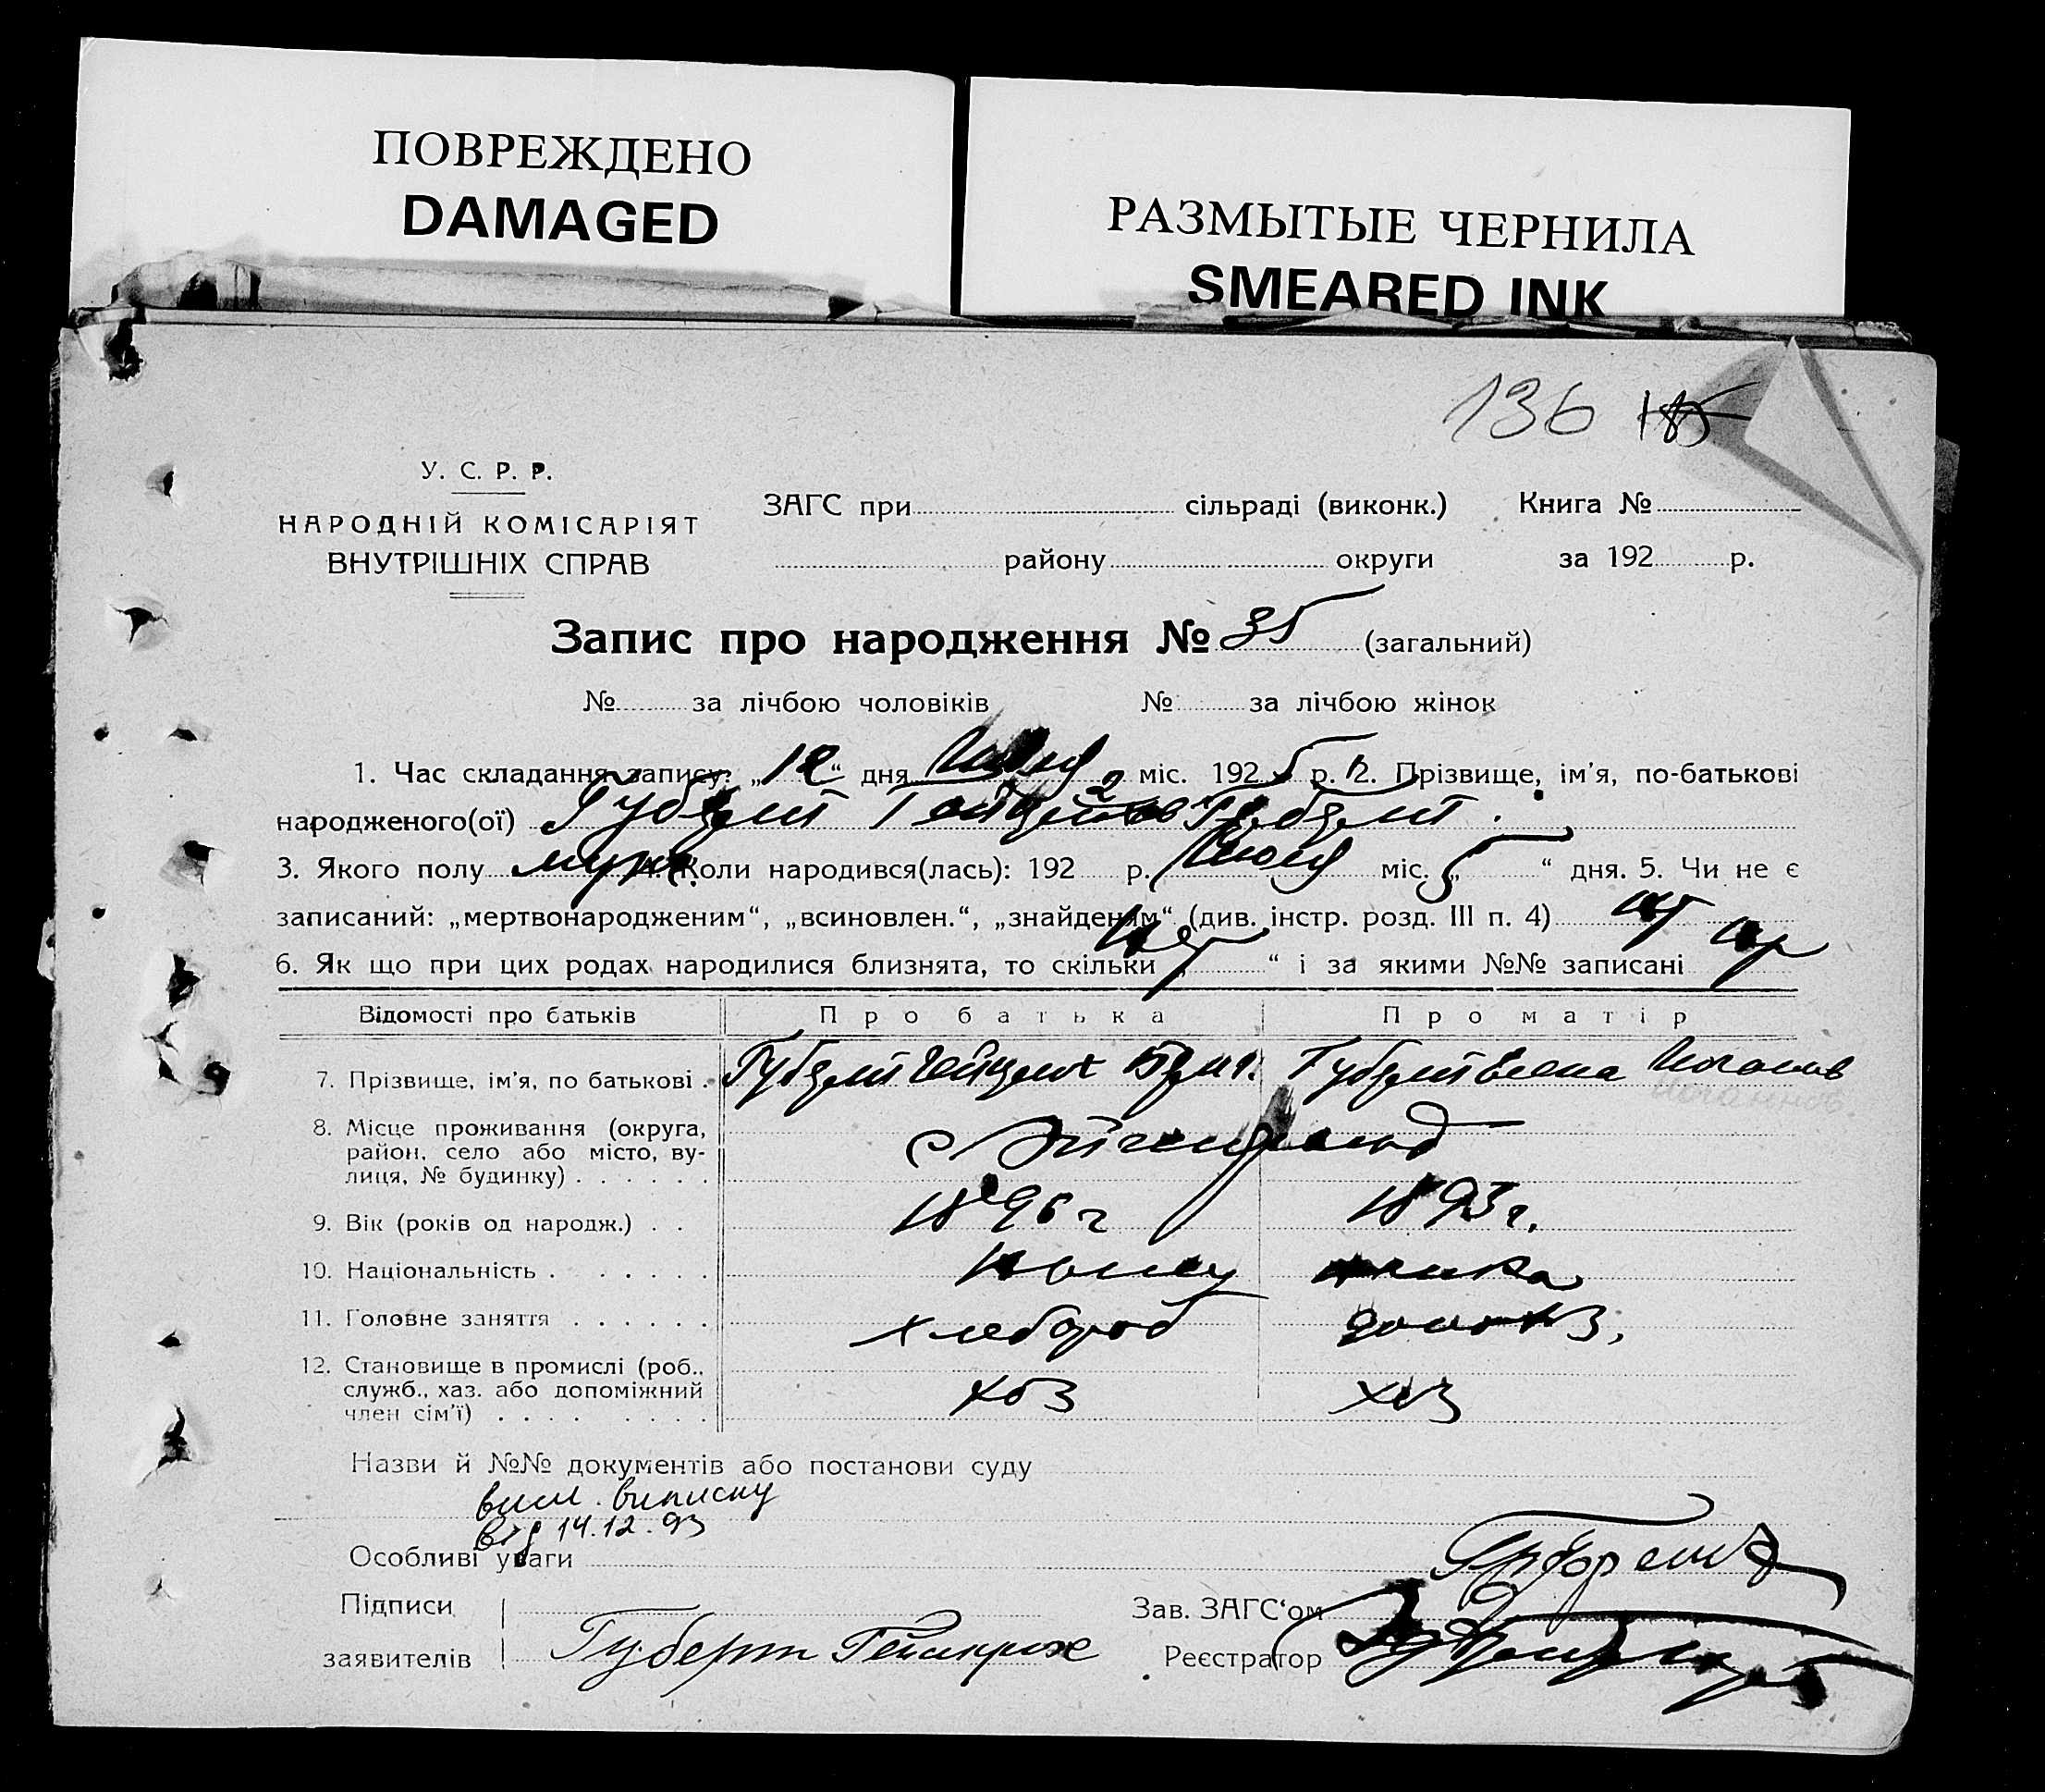 ПОВРЕЖДЕНО
DAMAGED
РАЗМЫТЫЕ ЧЕРНИЛА
SMEARED INK
136 185
У. С. Р. Р.
НАРОДНІЙ КОМІСАРІЯТ
ВНУТРІШНІХ СПРАВ
ЗАГС при сільраді (виконк.) Книга №
району округи за 192 р.
Запис про народження № 35 (загальний)
№ за лічбою чоловіків № за лічбою жінок
1. Час складання запису: „12“ дня міс. 1925 р. 2. Прізвище, ім’я, по-батькові
народженого(ої)
3. Якого полу муж. 4. Коли народився(лась): 192 р. Июля міс. „5“ дня. 5. Чи не є
записаний: „мертвонародженим“, „всиновлен.“, „знайденим“ (див. інстр. розд. III п. 4) нет
6. Як що при цих родах народилися близнята, то скільки „нет“ і за якими №№ записані
Відомості про батьків Про батька Про матір
7. Прізвище, ім’я, по батькові . Губерт Гейнрих Губерт Елена
8. Місце проживання (округа,
район, село або місто, ву-
лиця, № будинку) . . . . . . с Эйгенфельд
9. Вік (років од народж.) . . 1896 г 1893 г.
10. Національність . . . . . . немец немка
11. Головне заняття . . . . . . хлебороб домохоз.
12. Становище в промислі (роб.,
служб., хаз. або допоміжний
член сім’ї) . . . . . . . . хоз хоз
Назви й №№ документів або постанови суду
виписку
14.12.93
Особливі уваги
Підписи
заявителів Губерт Гейнрих
Зав. ЗАГС‘ом
Реєстратор